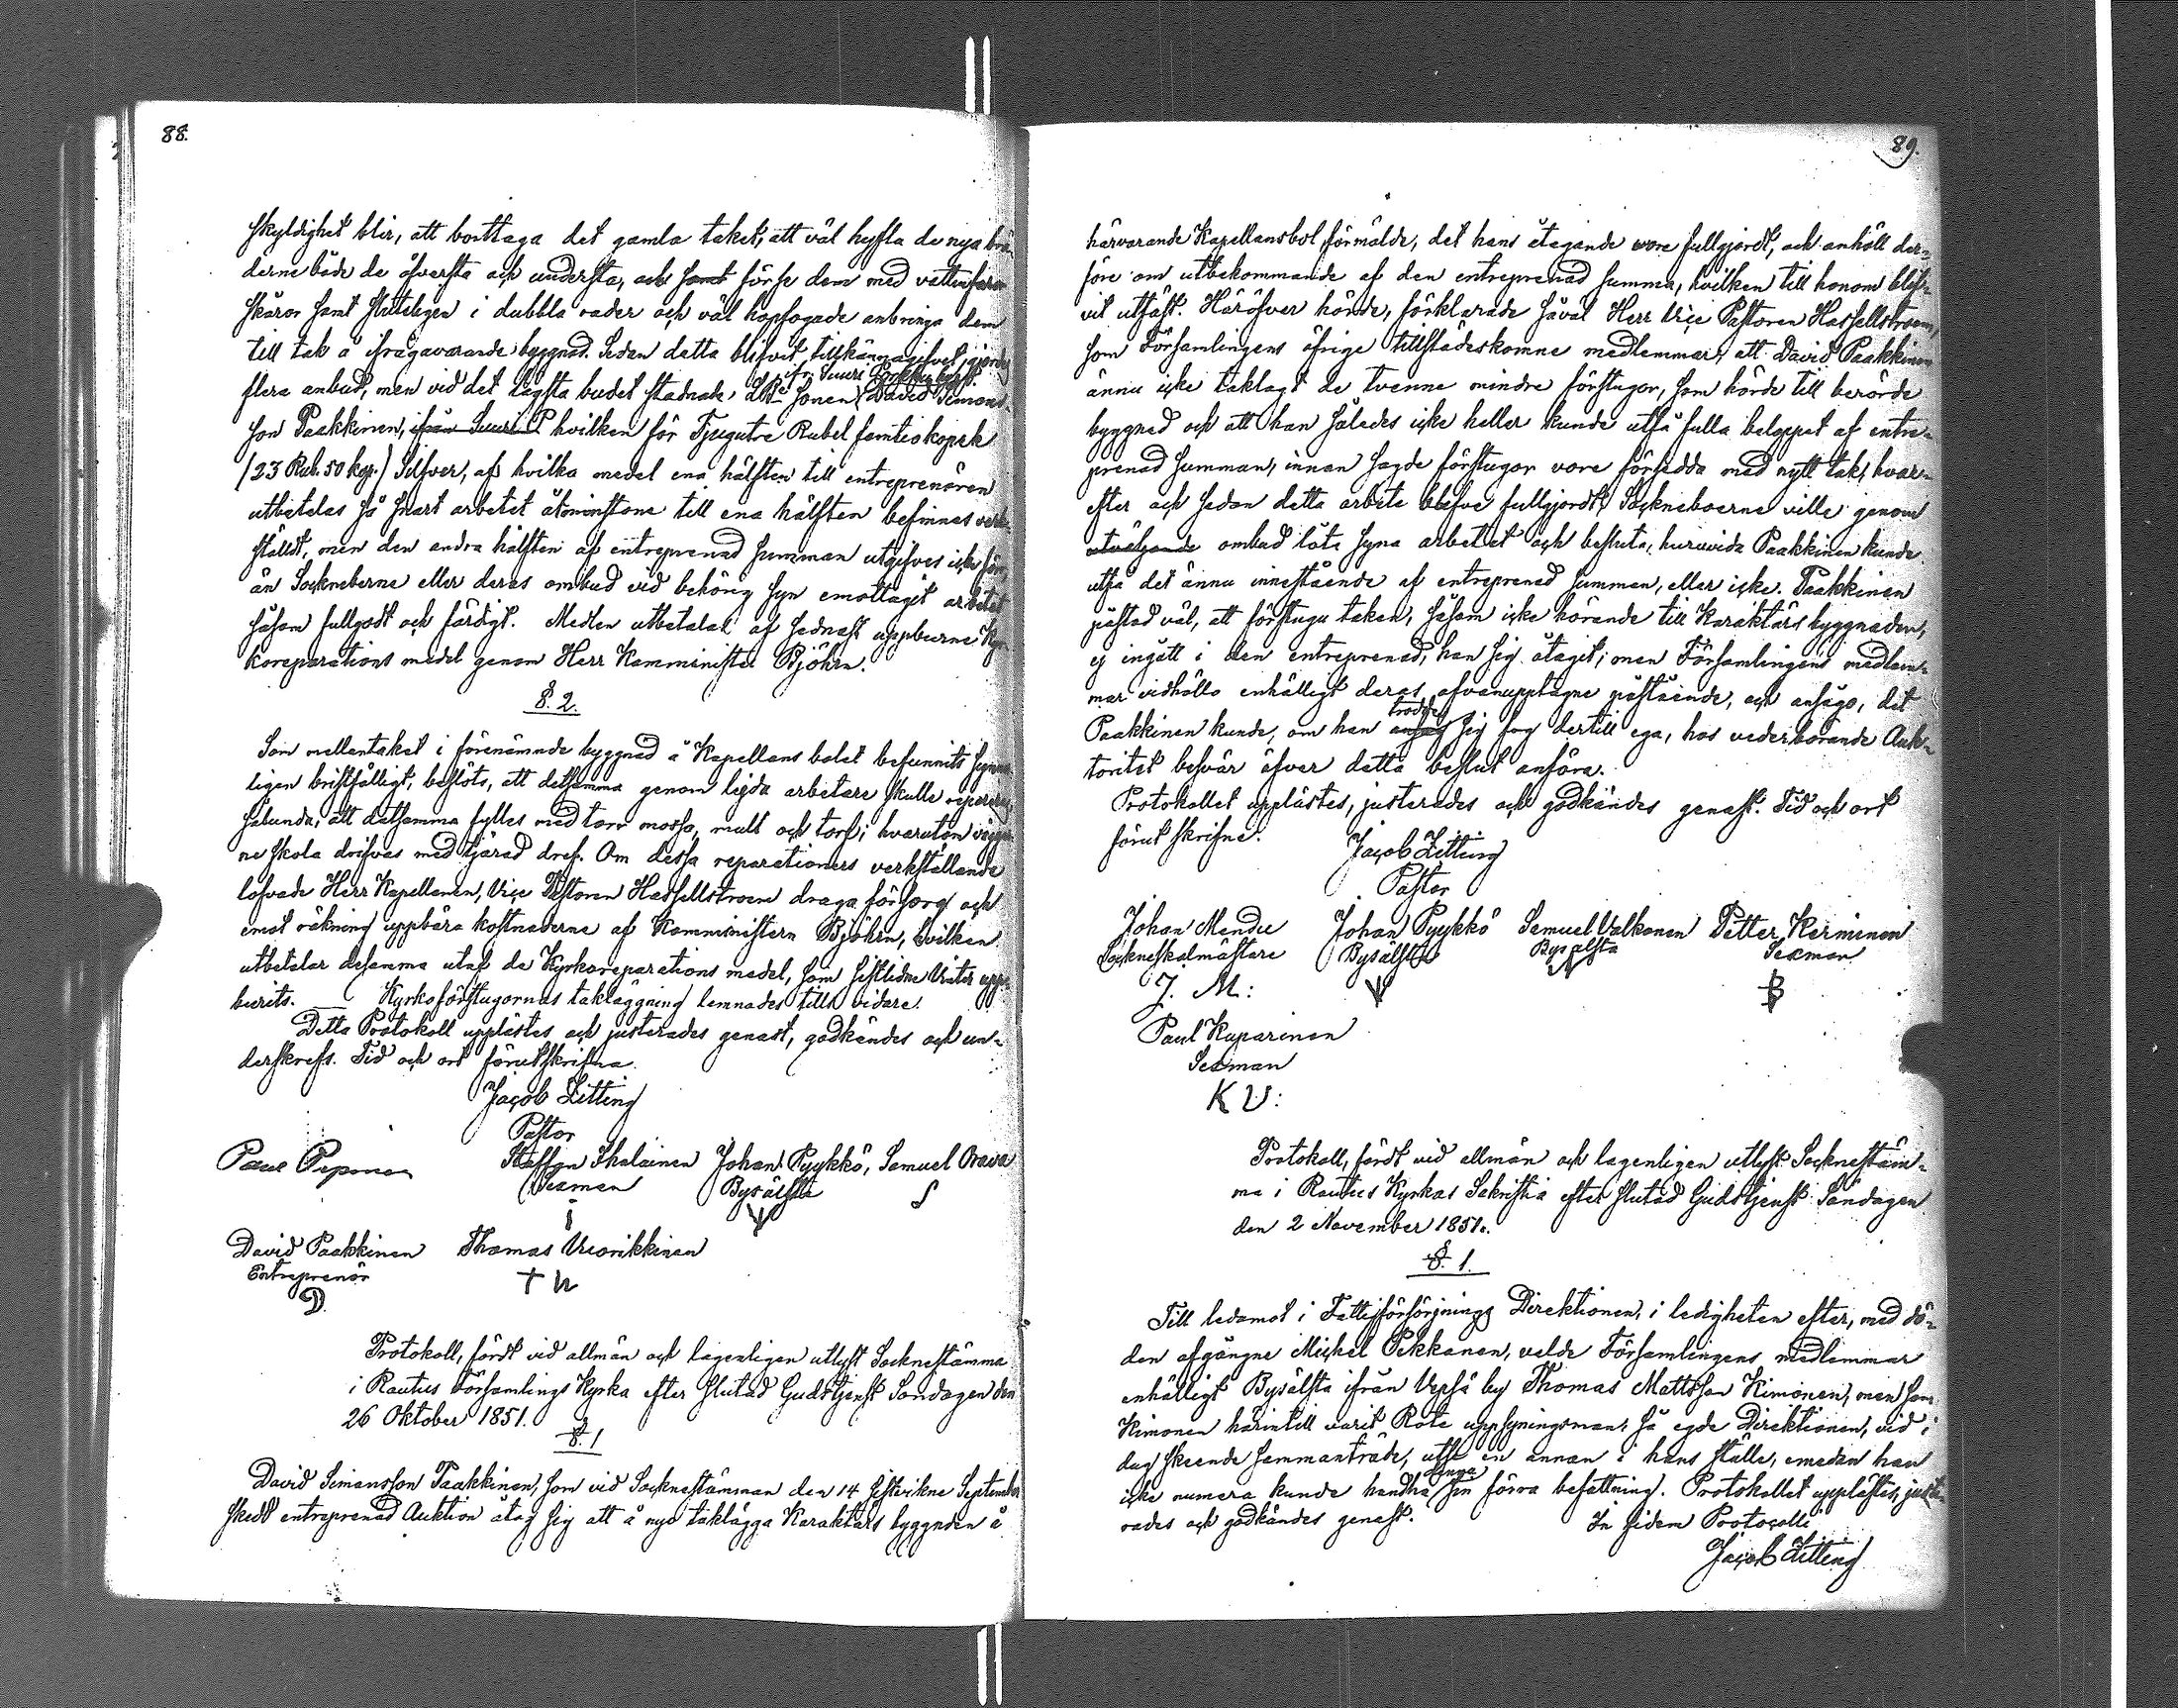 88.
skyldighet blir, att borttaga det gamla taket, att väl hyfla de nya brä-
derne både de öfversta och understa, och samt förse dem med vattufaror
skåror samt slutligen i dubbla rader och väl hopfogade anbringa dem
till tak å ifrågavarande byggnad. Sedan detta blifvit tillkännagifvet, gjordes
ifr. Suuri Porkku by
flera anbud, men vid det lägsta budet stadnade sonen David Simons-
son Paakkinen, ifrån Suuri P hvilken för Tjugutre Rubel femtio kopek
(23 Rub. 50 kop.) Silfver, af hvilka medel ena hälften till entreprenören
utbetalas så snart arbetet åtminstone till ena hälften befinnes verk-
ställdt, men den andra hälften af entreprenad summan utgifves icke förr
än Sockneborne eller deras ombud vid behörig syn emottagit arbetet
såsom fullgodt och färdigt. Medlen utbetalas af sednast uppburne Kyr-
koreparations medel genom Herr Kamministe Björn.
§. 2.
Som mellantaket i förenämnde byggnad å Kapellans bolet befunnits synner-
ligen bristfälligt, beslöts, att detsamma genom lejda arbetare skulle repareras
sålunda, att detsamma fylles med torr mossa, mull och torf; hvarutom väggar-
ne skola drifvas med tjärad dref. Om dessa reparationers verkställande
lofvade Herr Kapellanen, Vice Pastoren Hassellstroem draga försorg och
emot räkning uppbära kostnaderna af Kamministern Björn, hvilken
utbetalar desamma utaf de Kyrkoreparations medel, som sistlidne Vinter upp-
burits. — Kyrkoförstugornas takläggning lemnades tills vidare.
Detta Protokoll upplästes och justerades genast, godkändes och un-
derskrefs. Tid och ort förutskrifna.
Jacob Zitting
Pastor
Paul Pipponen Staffan Ihalainen Johan Pyykkö, Samuel Orava
Sexman Bysälsta S
David Paakkinen Thomas Vuorikkinen
Entreprenör T W
D.
Protokoll, fördt vid allmän och lagenligen utlyst Socknestämma
i Rautus Församlings Kyrka efter slutad Gudstjenst Söndagen den
26 Oktober 1851.
§. 1
David Simonsson Paakkinen, som vid Socknestämman den 14 sistvikne September
skedt entreprenad Auktion åtog sig att å nyo taklägga Karaktärs byggnden å
89.
härvarande Kapellansbol förmälde, det hans åtagande vore fullgjordt, och anhöll der-
före om utbekommande af den entreprenad summa, hvilken till honom blif-
vit utfäst. Häröfver hörde, förklarade såväl Herr Vice Pastoren Hassellstroem,
som Församlingens öfrige tillstädeskomne medlemmar, att David Paakkinen
ännu icke taklagt de tvenne mindre förstugor, som hörde till berörde
byggnad och att han således icke heller kunde utfå fulla beloppet af entre-
prenad summan, innan sagde förstugor vore försedda med nytt tak, hvar-
efter och sedan detta arbete blefve fullgjordt, Sockneboerne ville genom
utväljande ombud låta syna arbetet och besluta, huruvida Paakkinen kunde
utfå det ännu innestående af entreprenad summan, eller icke. Paakkinen
påstod väl, att förstugu taken, såsom icke hörande till Karaktärs byggnaden,
ej ingått i den entreprenad, han sig åtagit; men Församlingens medlem-
mar vidhöllo enhälligt deras ofvanupptagne påstående, och ansågo, det
trodde
Paakkinen kunde, om han ansåg sig fog dertill ega, hos vederbörande Auk-
toritet besvär öfver detta beslut anföra.
Protokollet upplästes, justerades och godkändes genast. Tid och ort
förut skrifne.
Jacob Zitting
Pastor
Johan Mendu Johan Pyykkö Samuel Valkonen Petter Kerminen
Sockneskolmästare Bysälsta Bysälsta Sexman
J. M:
Paul Kuparinen
Sexman
K U:
Protokoll, fördt vid allmän och lagenligen utlyst Socknestäm-
ma i Rautus Kyrkas Sakristia efter slutad Gudstjenst Söndagen
den 2 November 1851.
§. 1.
Till ledamot i Fattigförsörjnings Direktionen, i ledigheten efter, med dö-
den afgångne Michel Pekkanen, valde Församlingens medlemmar
enhälligt Bysälsta ifrån Vepsä by Thomas Mattsson Kimonen, men som
Kimonen härintill varit Rote uppsyningsman, så egde Direktionen, vid i
dag skeende sammanträde, utse en annan i hans ställe, emedan han
icke numera kunde handha sin förra befattning. Protokollet upplästes, juste-
rades och godkändes genast. In fidem Protocolli
Jacob Zitting